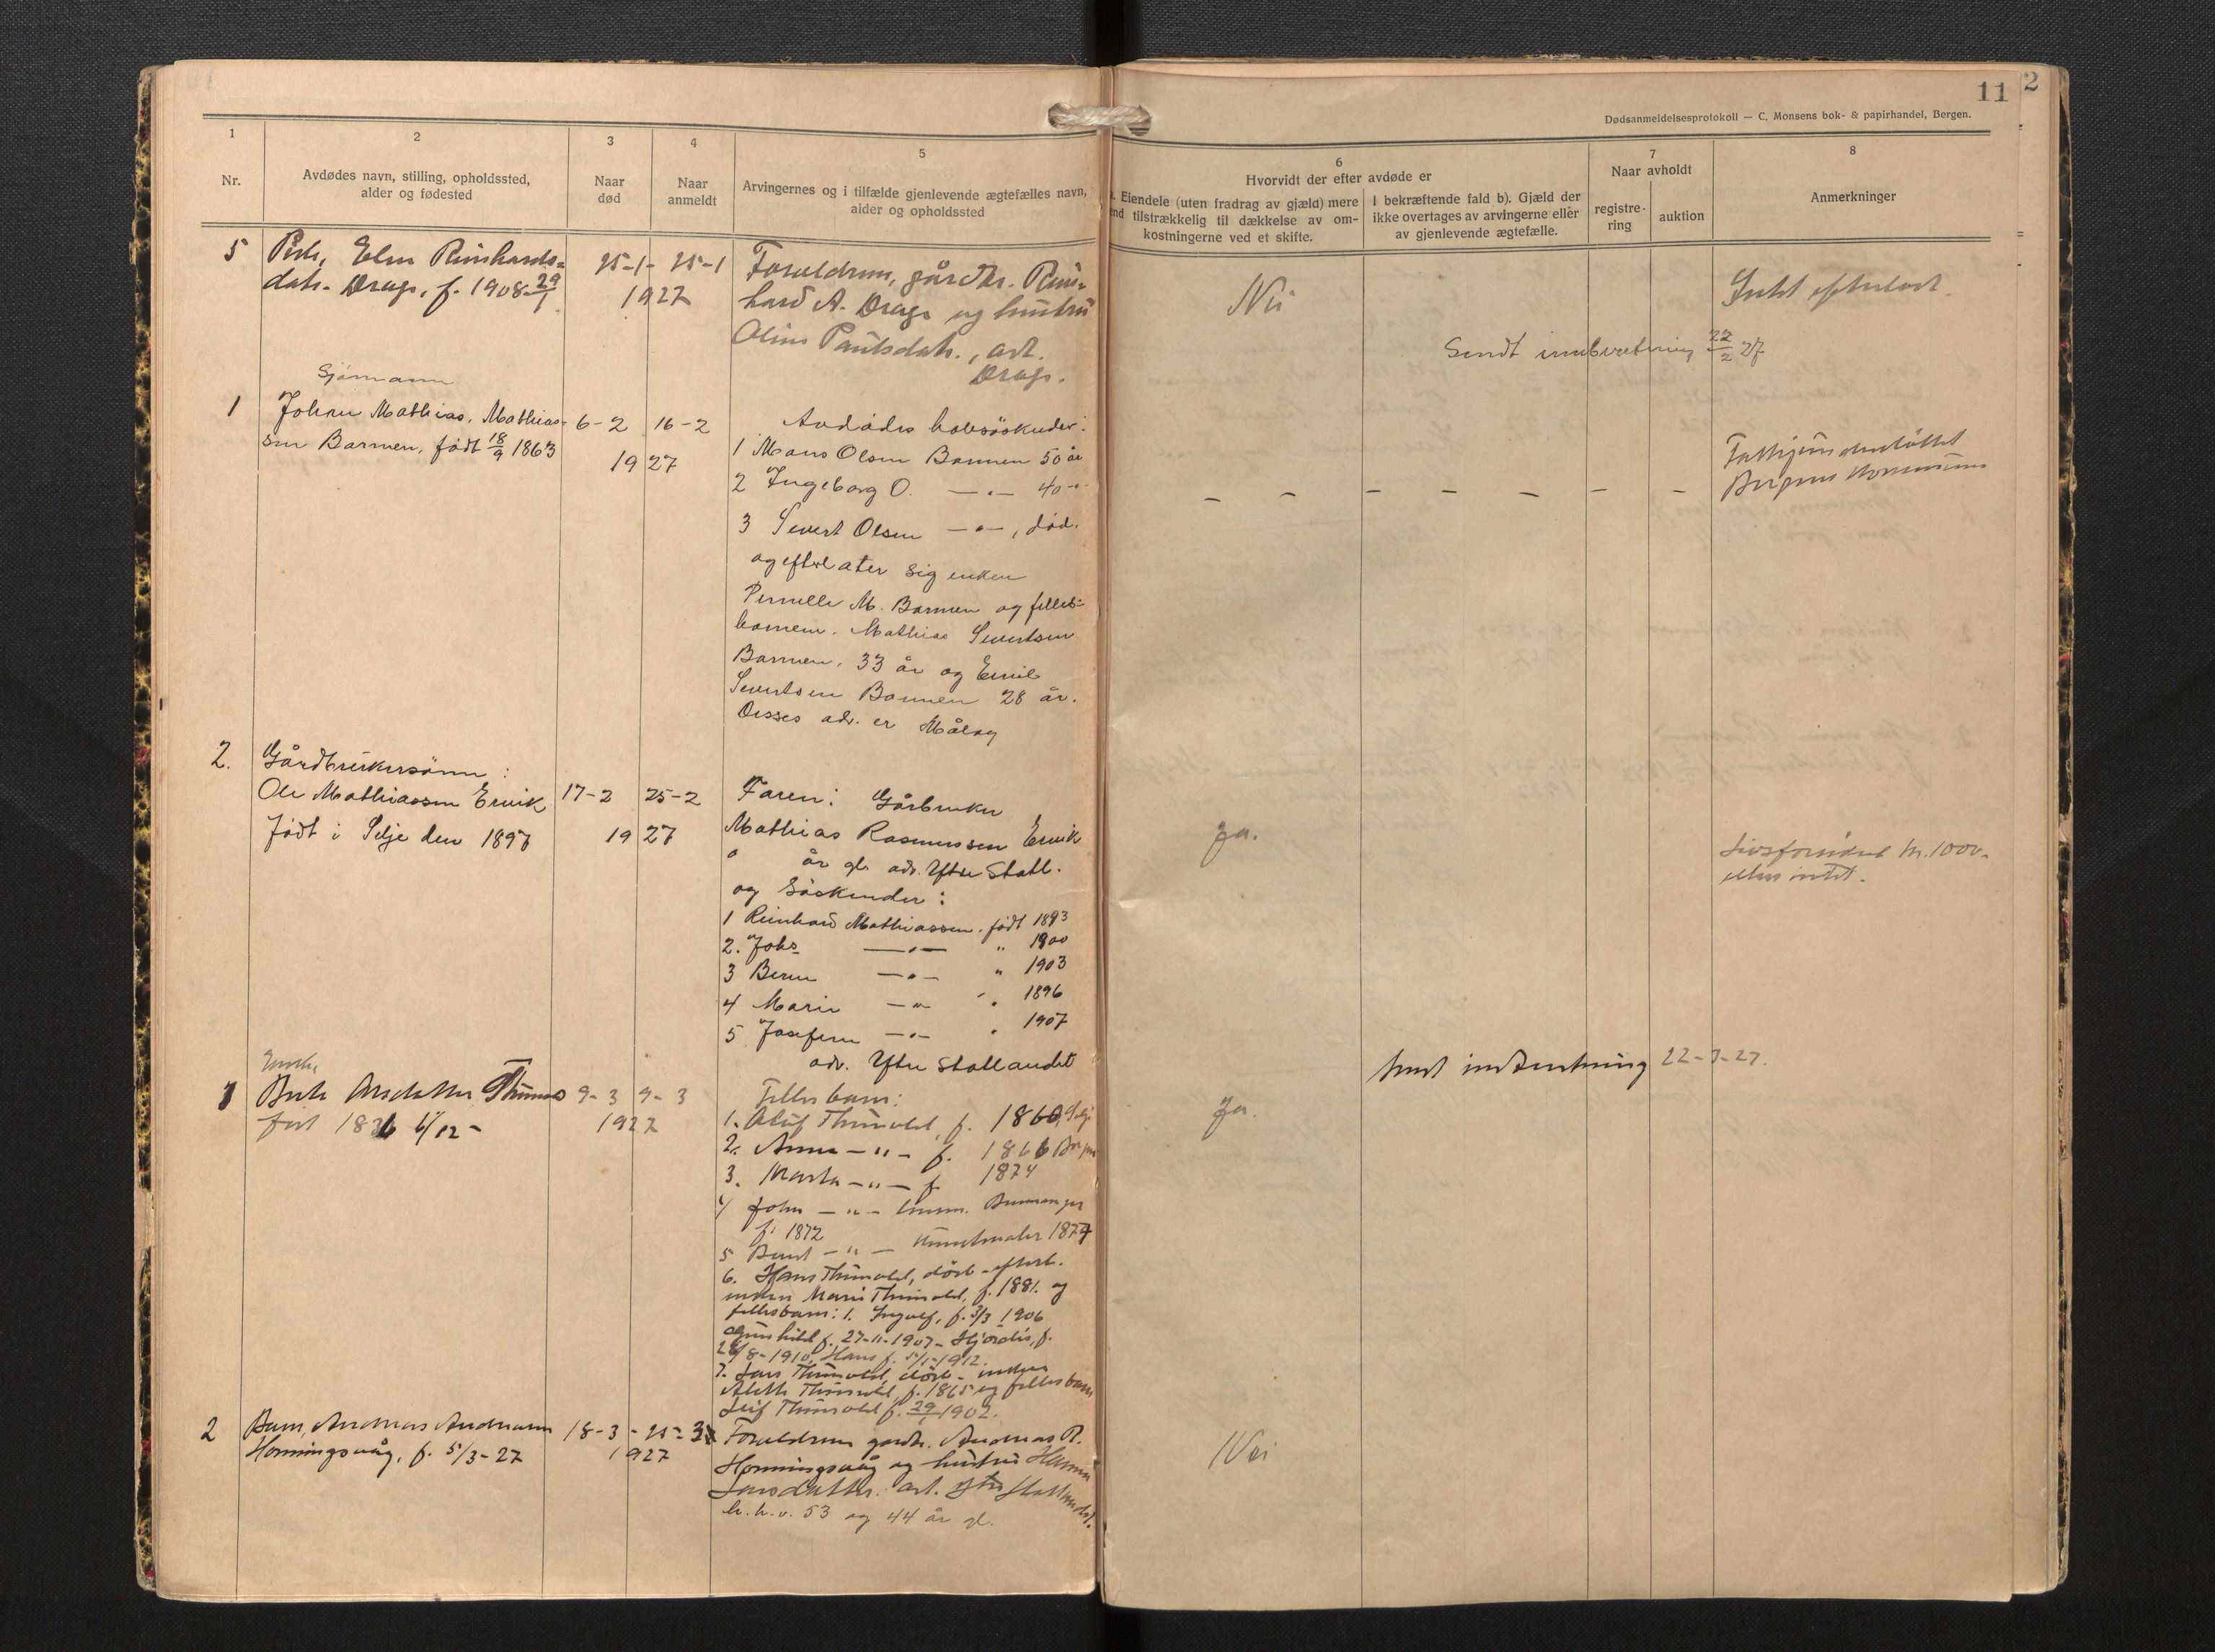 11
2
Dødsanmeldelsesprotokoll — C. Monsens bok- & papirhandel, Bergen.
1
Nr.
2
Avdødes navn, stilling, opholdssted,
alder og fødested
3
Naar
død
4
Naar
anmeldt
5
Arvingernes og i tilfælde gjenlevende ægtefælles navn,
alder og opholdssted
6
Hvorvidt der efter avdøde er
Eiendele (uten fradrag av gjæld) mere
end tilstrækkelig til dækkelse av om-
kostningerne ved et skifte.
I bekræftende fald b). Gjæld der
ikke overtages av arvingerne eller
av gjenlevende ægtefælle.
7
Naar avholdt
registre-
ring
auktion
8
Anmerkninger
5
Reinhards-
datr. Drage, f. 1908 29/1
25-1- 25-1
1927
Foreldrene, gårdbr. Rein-
hard A. Drage og hustru
Oline Paulsdatr., adr.
Drage.
Nei
Intet efterladt.
Sendt innberetning 22/2 27
Sjømann
1
Johan Mathias, Mathias-
sen Barmen, født 18/9 1863
6-2
16-2
1927
Avdødes halvsøskender:
1 Mons Olsen Barmen 50 år
2 Ingeborg O. —"— 40 -"-
3 Severt Olsen —"—, død.
og efterlater sig enken
Pernelle M. Barmen og felles-
barnene. Mathias Severtsen
Barmen, 33 år og Emil
Severtsen Barmen 28 år.
Disses adr. er Måløy
– – – – – – –
Bergens Kommune
2.
Gårdbrukersønn:
Ole Mathiassen Ervik
født i Selje den 1897
17-2
25-2
1927
Faren: Gårbruker
Mathias Rasmussen Ervik
år gl. adr. Ytre Statl.
og Søskender:
1 Reinhard Mathiassen. født 1893
2. Johs —"— " 1900
3 Bern —"— " 1903
4 Marie —"— " 1896
5 Josefine —"— " 1907
adr. Ytre Stallandet
Ja.
Livsforsikret kr. 1000.-
ellers intet.
Sendt indberetning 22-3-27.
Enke,
1
9-3
9-3
1927
Fellesbarn:
1. Oluf Thimvold, f. 1860, Selje
2. Anna —"— f. 1866
3. Marta —"— f 1874
4 John —"—
f. 1872
5 Bernt —"— Kunstmaler 1877
6. Hans Thimvold, død - efterl.
enken Marie Thimvold, f. 1881. og
fellesbarn: 1. Ingolf, f. 3/3 1906
Gunhild f. 27-11-1907 - Hjördis, f.
7. Lars Thimvold, død - enken
Thimvold, f. 1865 og fellesbarn
Leif Thimvold f. 1902.
Ja.
2
Barn, Andreas Andreassen
Honningsvåg, f. 5/3-27
18-3
1927
Foreldrene gardbr. Andreas R.
Honningsvåg og hustru
Larsdatter. adr. Ytre Stallandet.
h.h.v. 53 og 44 år gl.
Nei